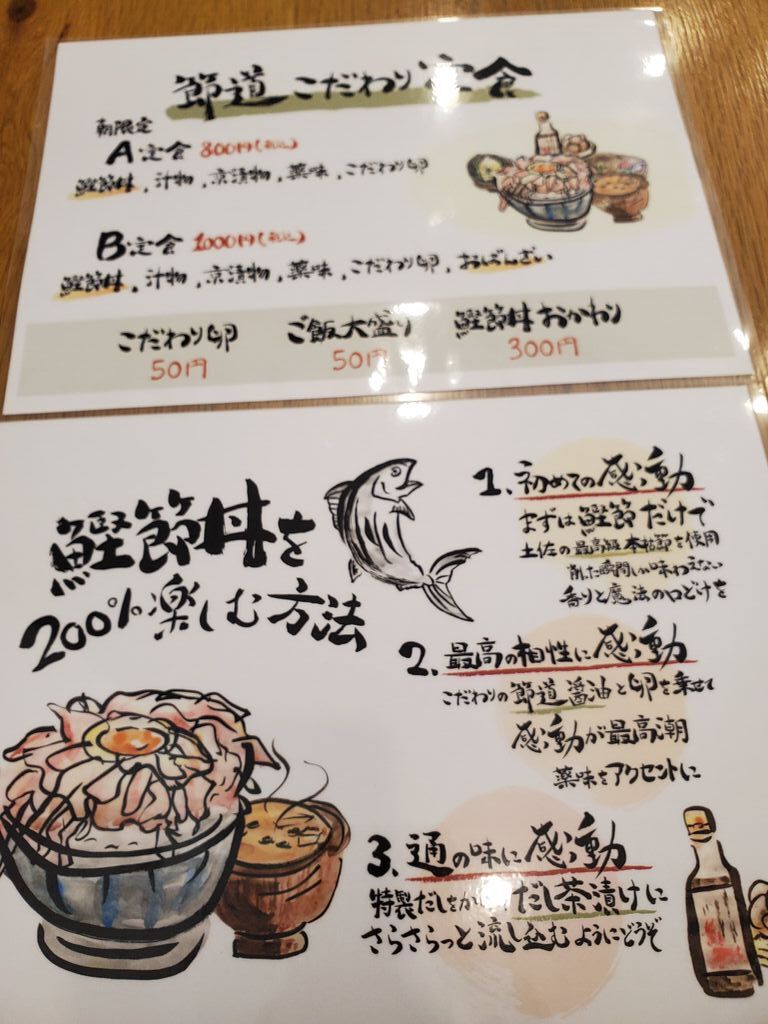 節道 こだわり定食
朝限定
A定食 800円(税込)
鰹節丼、汁物、京漬物、薬味、こだわり卵
B定食 1000円(税込)
鰹節丼、汁物、京漬物、薬味、こだわり卵、おばんざい
こだわり卵 ご飯大盛り 鰹節丼おかわり
50円 50円 300円
鰹節丼を
200%楽しむ方法
1. 初めての感動
まずは鰹節だけで
土佐の最高級本枯節を使用
削した瞬間しか味わえない
香りと魔法の口どけを
2. 最高の相性に感動
こだわりの節道醤油と卵を乗せて
感動が最高潮
薬味をアクセントに
3. 通の味に感動
特製だしをかけ だし茶漬けに
さらさらっと流し込むようにどうぞ